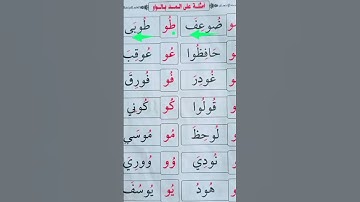 أمثلة على المد بالواو
ضُوعِفَ طُو طُوبَى
حَافِظُوا عُو عُوقِبَ
غُودِرَ فُو فُورِقَ
قُولُوا كُو كُونِي
لُوحِظَ مُو مُوسَى
نُودِيَ وُو وُورِيَ
هُودُ يُو يُوسُفَ